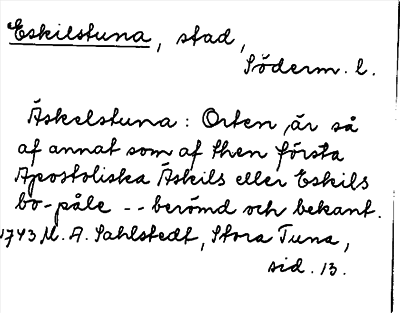 Eskilstuna, stad,
Söderm. l.
Äskelstuna: Orten är så
af annat som af then första
Apostoliska Äskils eller Eskils
bo-påle -- berömd och bekant.
1743 M. A. Sahlstedt, Stora Tuna,
sid. 13.